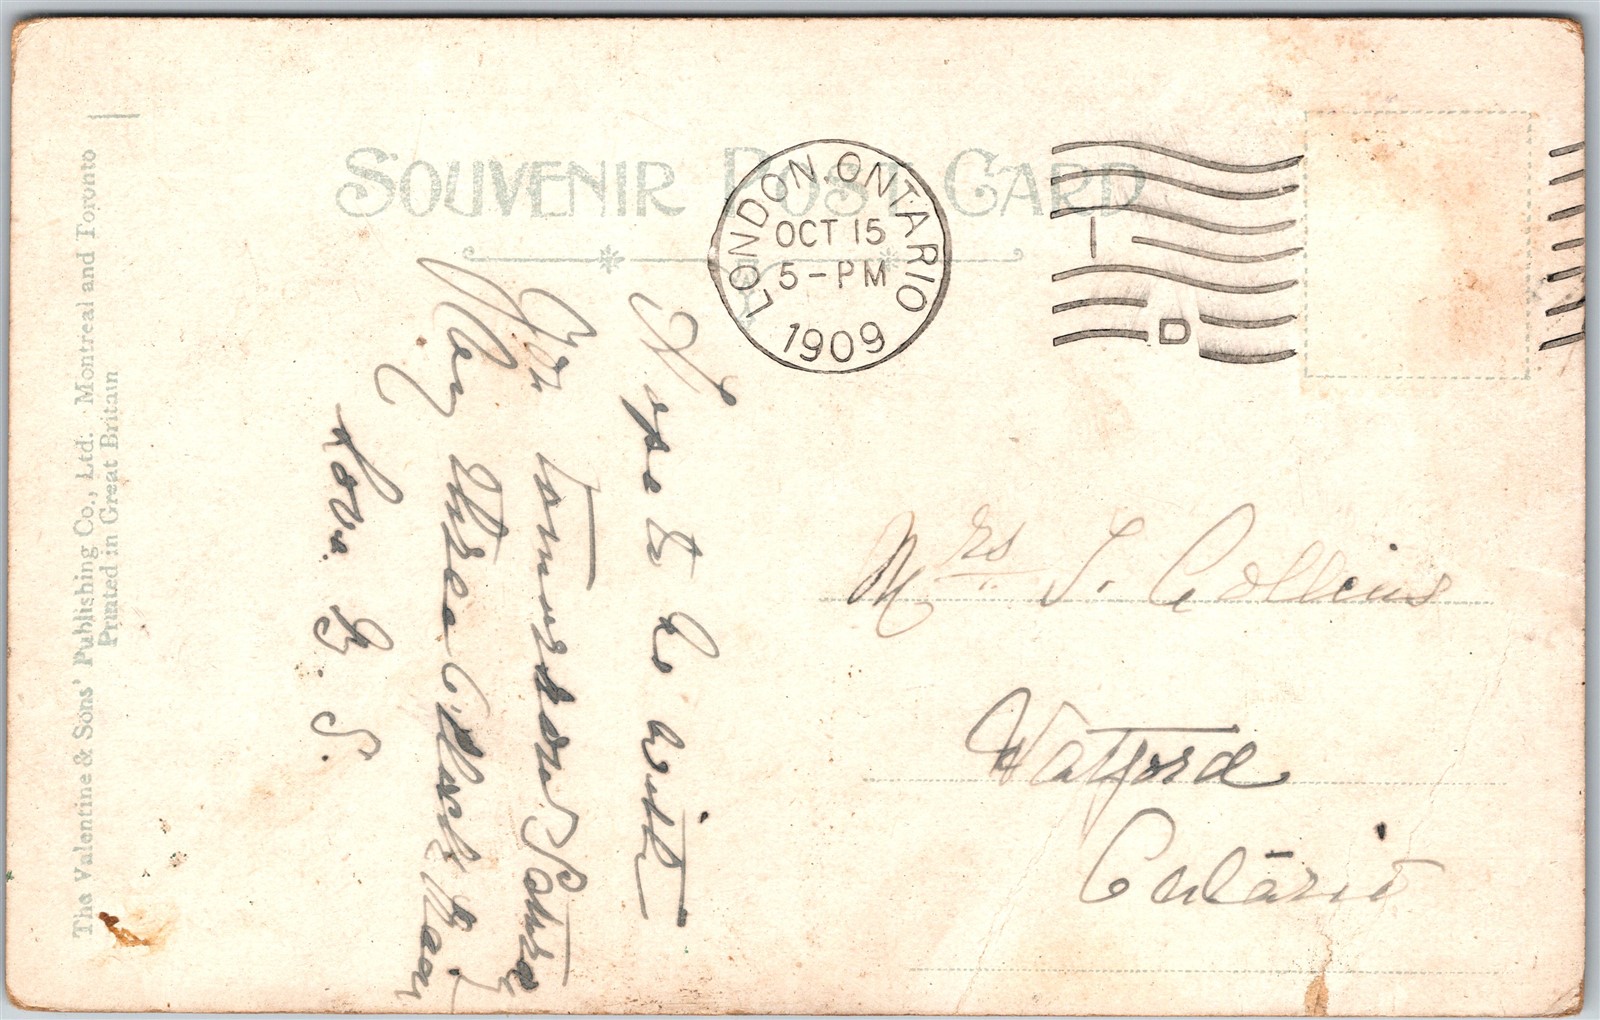 SOUVENIR POST CARD
LONDON, ONTARIO
OCT 15
5-PM
1909
D
The Valentine & Sons' Publishing Co., Ltd. Montreal and Toronto
Printed in Great Britain
Hope to be with
you tomorrow Saturday
Coy three o'clock train
Love. B. S.
Mrs T. Collins
Watford
Ontario